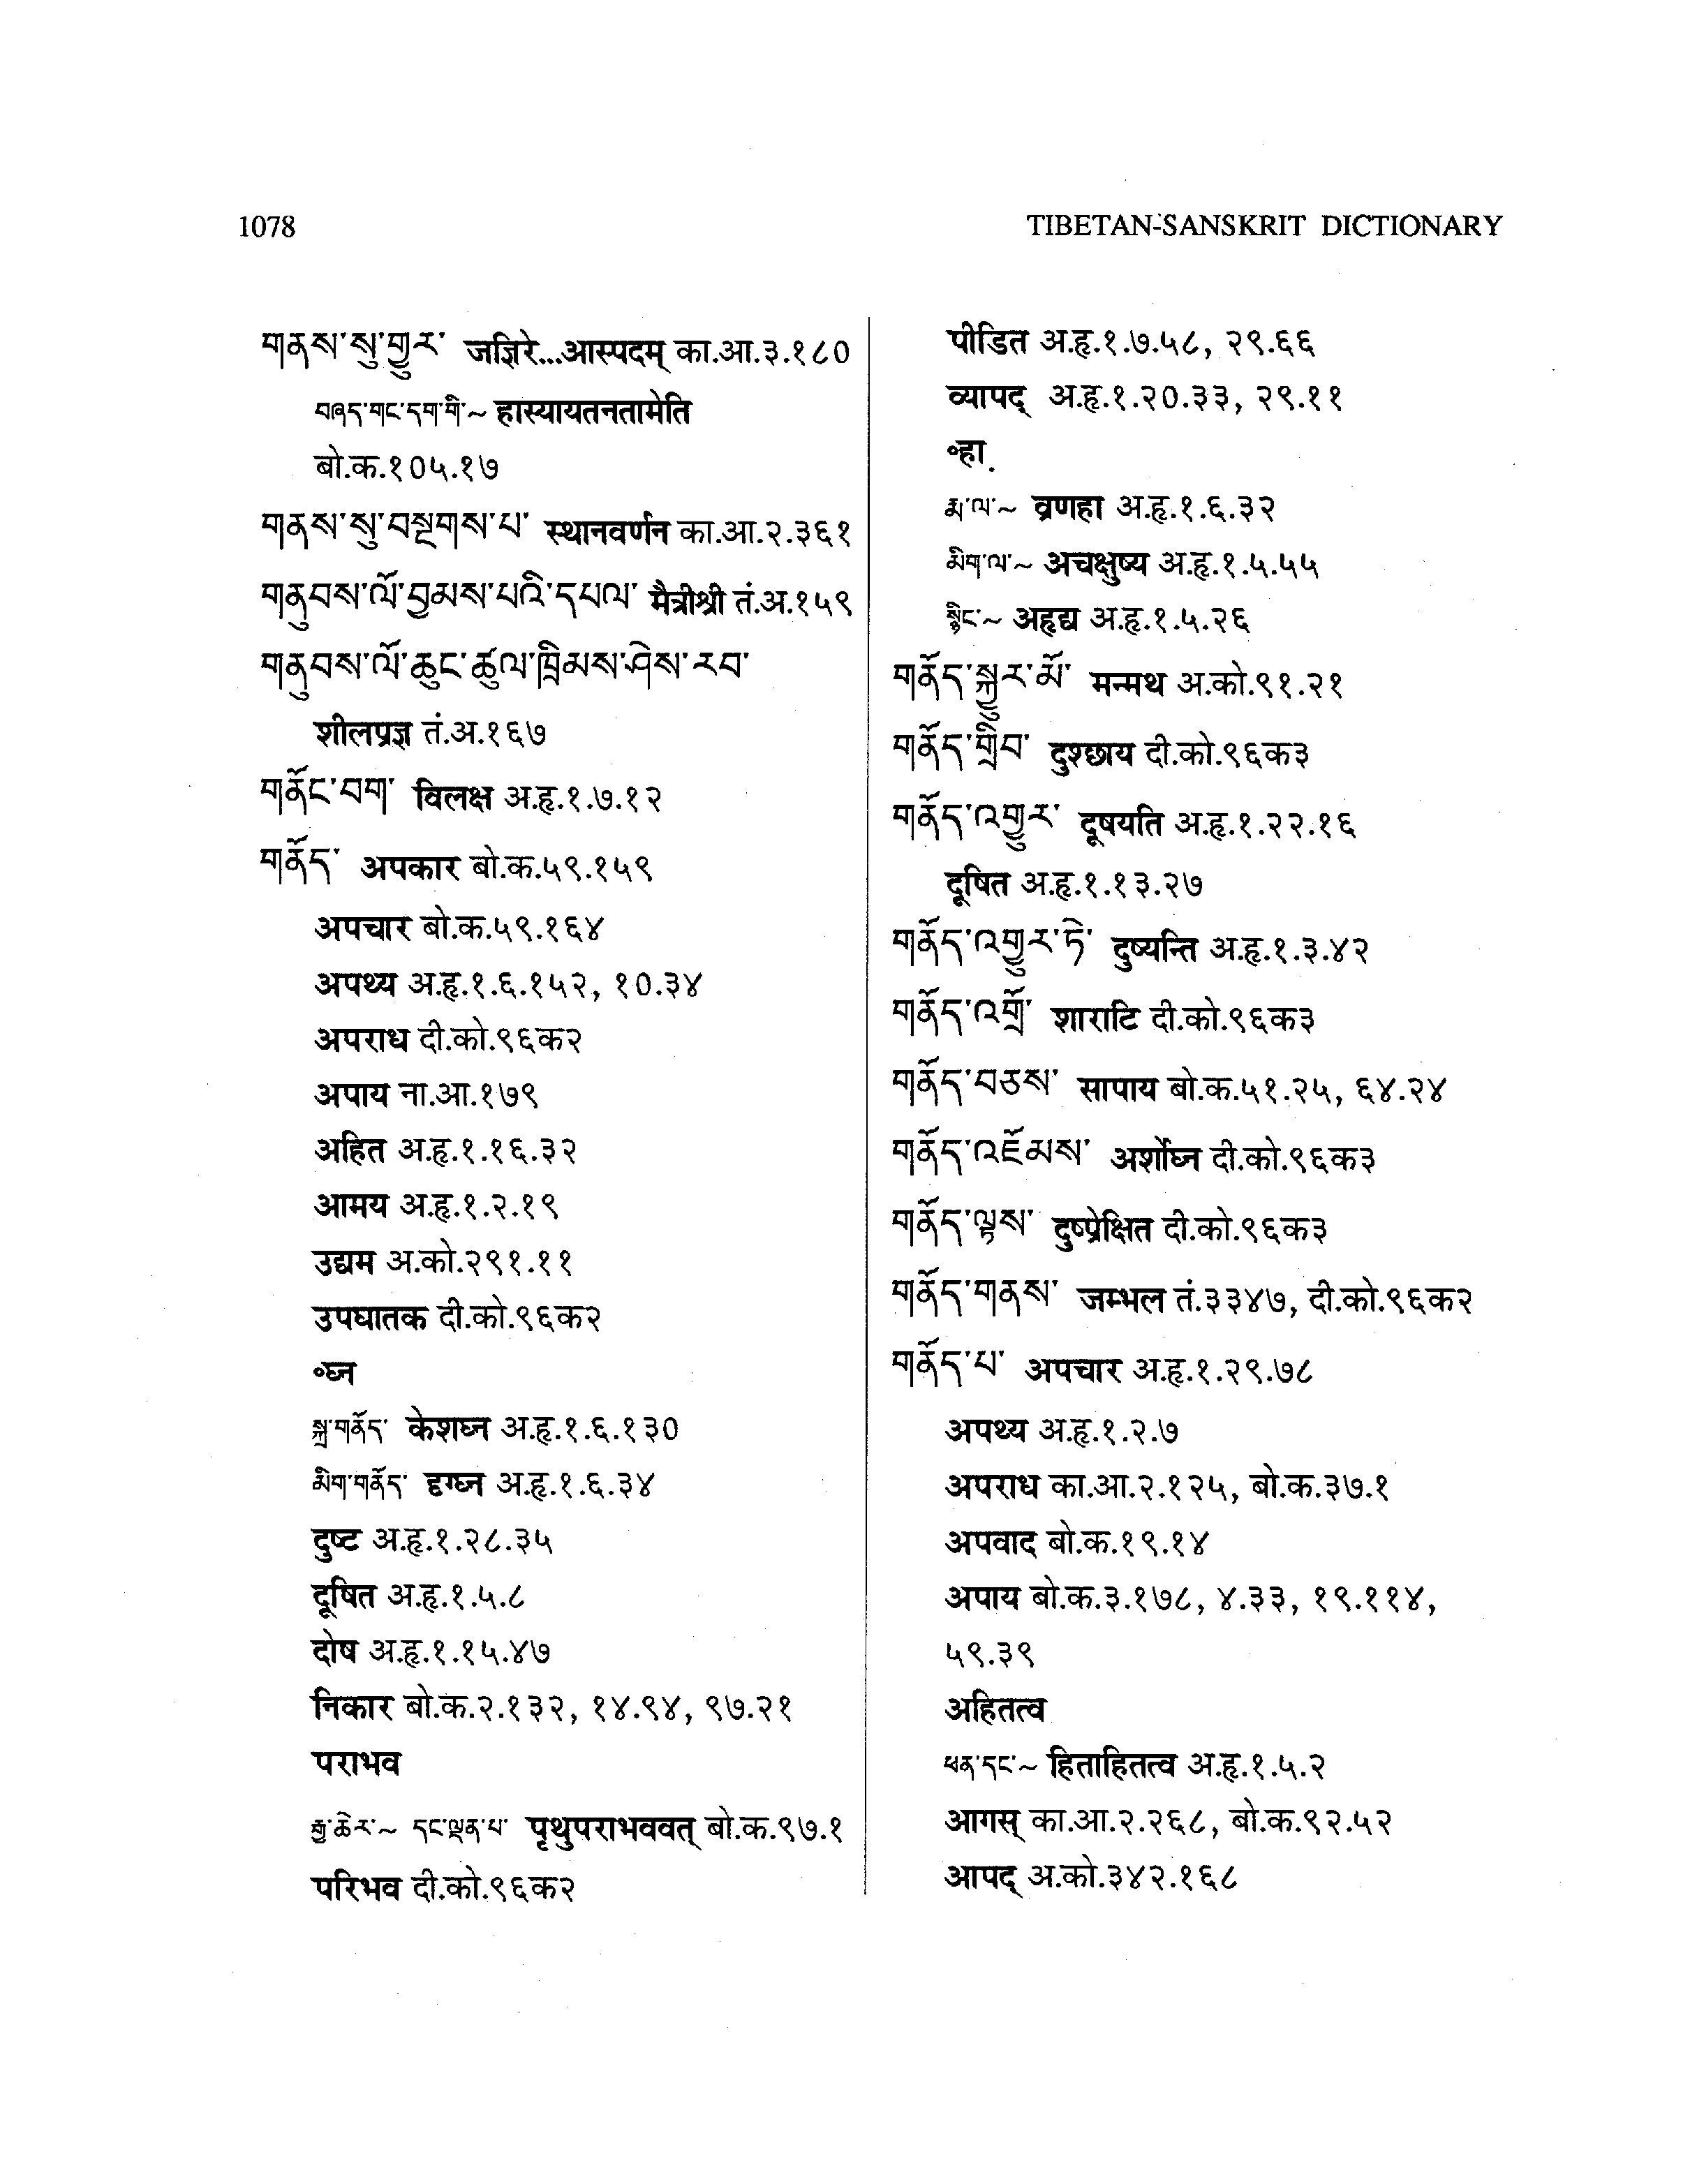 1078
TIBETAN-SANSKRIT DICTIONARY
གནས་སུ་གྱུར་ जज्ञिरे...आस्पदम् का.आ.३.१८०
བཞད་གང་དག་གི་~ हास्यायतनतामेति
बो.क.१०५.१७
གནས་སུ་བསྔགས་པ་ स्थानवर्णन का.आ.२.३६१
གནུབས་ལོ་བྱམས་པའི་དཔལ་ मैत्रीश्री तं.अ.१५९
གནུབས་ལོ་ཆུང་ཚུལ་ཁྲིམས་ཤེས་རབ་
शीलप्रज्ञ तं.अ.१६७
གནོང་བག་ विलक्ष अ.हृ.१.७.१२
གནོད་ अपकार बो.क.५९.१५९
अपचार बो.क.५९.१६४
अपथ्य अ.हृ.१.६.१५२, १०.३४
अपराध दी.को.९६क२
अपाय ना.आ.१७९
अहित अ.हृ.१.१६.३२
आमय अ.हृ.१.२.१९
उद्यम अ.को.२९१.११
उपघातक दी.को.९६क२
॰घ्न
སྐྲ་གནོད་ केशघ्न अ.हृ.१.६.१३०
མིག་གནོད་ दृग्घ्न अ.हृ.१.६.३४
दुष्ट अ.हृ.१.२८.३५
दूषित अ.हृ.१.५.८
दोष अ.हृ.१.१५.४७
निकार बो.क.२.१३२, १४.९४, ९७.२१
पराभव
རྒྱ་ཆེར་~ དང་ལྡན་པ་ पृथुपराभववत् बो.क.९७.१
परिभव दी.को.९६क२
पीडित अ.हृ.१.७.५८, २९.६६
व्यापद् अ.हृ.१.२०.३३, २९.११
॰हा
རྨ་ལ་~ व्रणहा अ.हृ.१.६.३२
མིག་ལ་~ अचक्षुष्य अ.हृ.१.५.५५
སྙིང་~ अहृद्य अ.हृ.१.५.२६
གནོད་སྐྱུར་མོ་ मन्मथ अ.को.९१.२१
གནོད་གྲིབ་ दुश्छाय दी.को.९६क३
གནོད་འགྱུར་ दूषयति अ.हृ.१.२२.१६
दूषित अ.हृ.१.१३.२७
གནོད་འགྱུར་ཏེ་ दुष्यन्ति अ.हृ.१.३.४२
གནོད་འགྲོ་ शाराटि दी.को.९६क३
གནོད་བཅས་ सापाय बो.क.५१.२५, ६४.२४
གནོད་འཇོམས་ अर्शोघ्न दी.को.९६क३
གནོད་ལྟས་ दुष्प्रेक्षित दी.को.९६क३
གནོད་གནས་ जम्भल तं.३३४७, दी.को.९६क२
གནོད་པ་ अपचार अ.हृ.१.२९.७८
अपथ्य अ.हृ.१.२.७
अपराध का.आ.२.१२५, बो.क.३७.१
अपवाद बो.क.१९.१४
अपाय बो.क.३.१७८, ४.३३, १९.११४,
५९.३९
अहितत्व
ཕན་དང་~ हिताहितत्व अ.हृ.१.५.२
आगस् का.आ.२.२६८, बो.क.९२.५२
आपद् अ.को.३४२.१६८